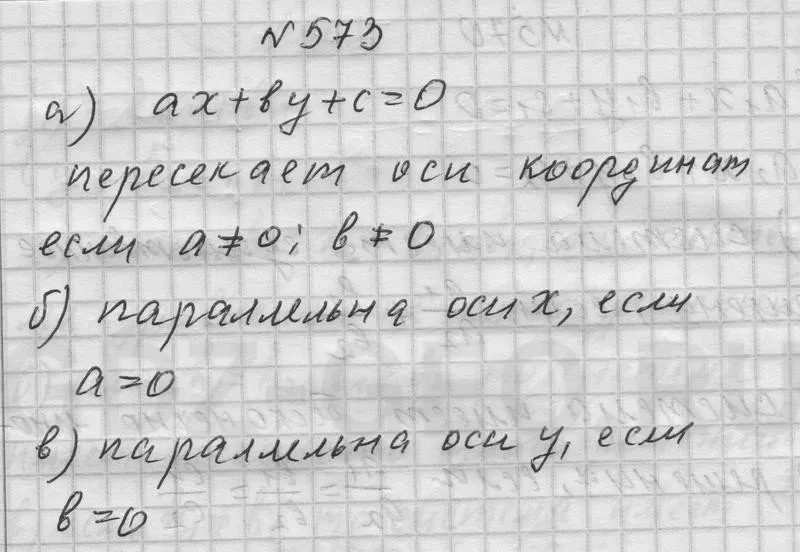 №573
а) ax+by+c=0
пересекает оси координат
если a≠0; b≠0
б) параллельна оси x, если
a=0
в) параллельна оси y, если
b=0